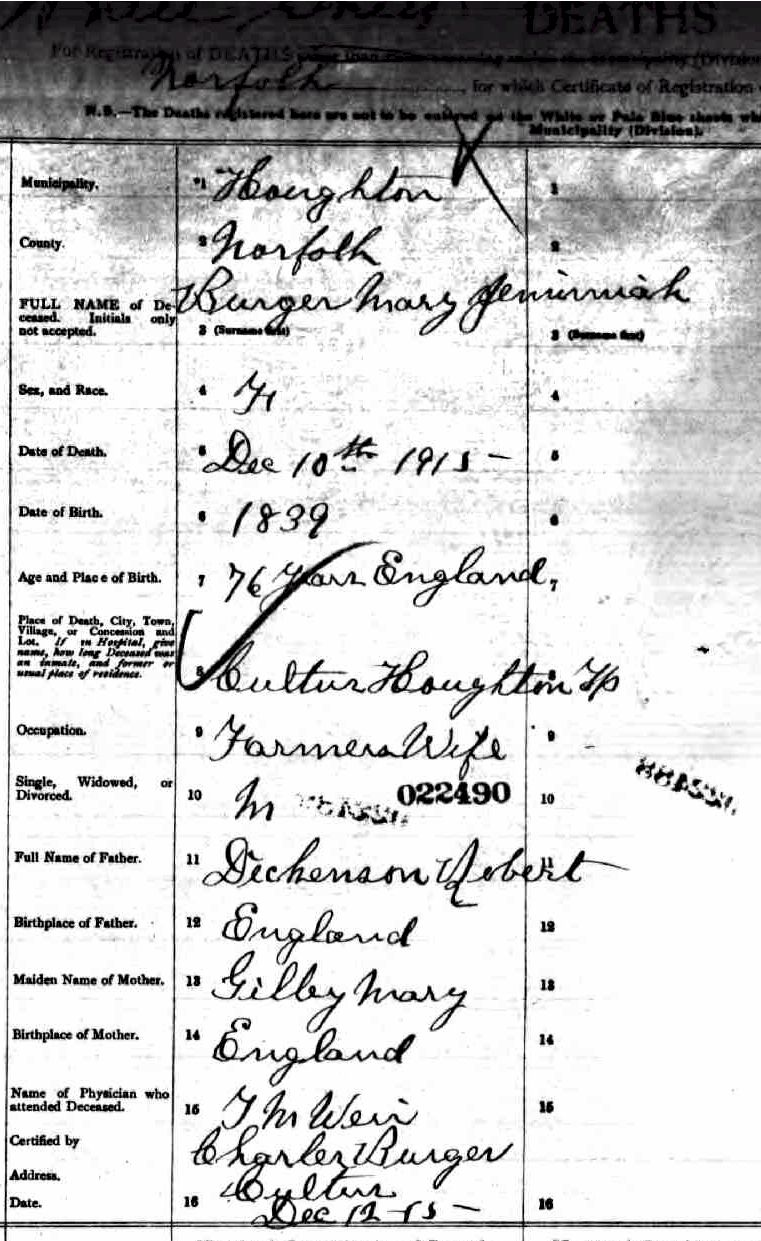 DEATHS
For Registration of DEATHS
Norfolk, for which Certificate of Registration
N.B.—The Deaths registered here are not to be entered on the White or Pale Blue sheets
Municipality (Division).
Municipality. 1 Houghton 1
County. 2 Norfolk 2
Burger Mary Jemimiah
FULL NAME of De-
ceased. Initials only
not accepted. 3 (Surname first) 3 (Surname first)
Sex, and Race. 4 F 4
Date of Death. 5 Dec 10th 1915 – 5
Date of Birth. 6 1839 6
Age and Place of Birth. 7 76 Years England 7
Place of Death, City, Town,
Village, or Concession and
Lot. If in Hospital, give
name, how long Deceased was
an inmate, and former or
usual place of residence. 8 Cultus Houghton Tp
Occupation. 9 Farmers Wife 9
Single, Widowed, or
Divorced. 10 M 022490 10
Full Name of Father. 11 Dickenson Robert 11
Birthplace of Father. 12 England 12
Maiden Name of Mother. 13 Gilby Mary 13
Birthplace of Mother. 14 England 14
Name of Physician who
attended Deceased. 15 T M Weir 15
Certified by Charles Burger
Address. Cultus
Date. 16 Dec 12 – 15 – 16